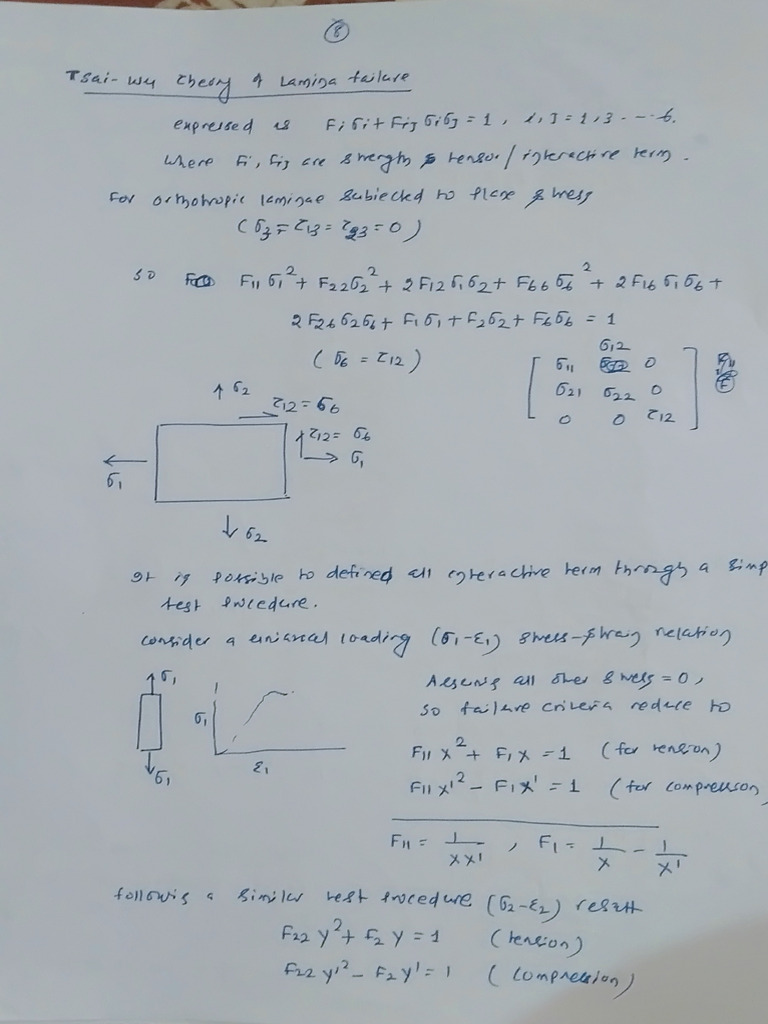 8
Tsai-Wu theory of Lamina failure
expressed as Fiσi + Fijσiσj = 1, i,J = 1,3 - - - 6.
where Fi, Fij are strength tensor/interactive term.
For orthotropic laminae subjected to plane stress
(σ3 = τ13 = τ23 = 0)
so F11σ1² + F22σ2² + 2F12σ1σ2 + F66σ6² + 2F16σ1σ6 +
2F26σ2σ6 + F1σ1 + F2σ2 + F6σ6 = 1
(σ6 = τ12)
σ12
σ11 0
σ21 σ22 0
0 0 τ12
σ2
τ12 = σ6
τ12 = σ6
σ1
σ1
σ2
It is possible to defined all interactive term through a simp
test procedure.
consider a uniaxial loading (σ1-ε1) stress-strain relation
σ1
σ1
ε1
σ1
Assuming all other stress = 0,
so failure criteria reduce to
F11 X² + F1 X = 1 (for tension)
F11 X'² - F1 X' = 1 (for compression
F11 = 1/XX' , F1 = 1/X - 1/X'
following a similar test procedure (σ2-ε2) result
F22 Y² + F2 Y = 1 (tension)
F22 Y'² - F2 Y' = 1 (compression)